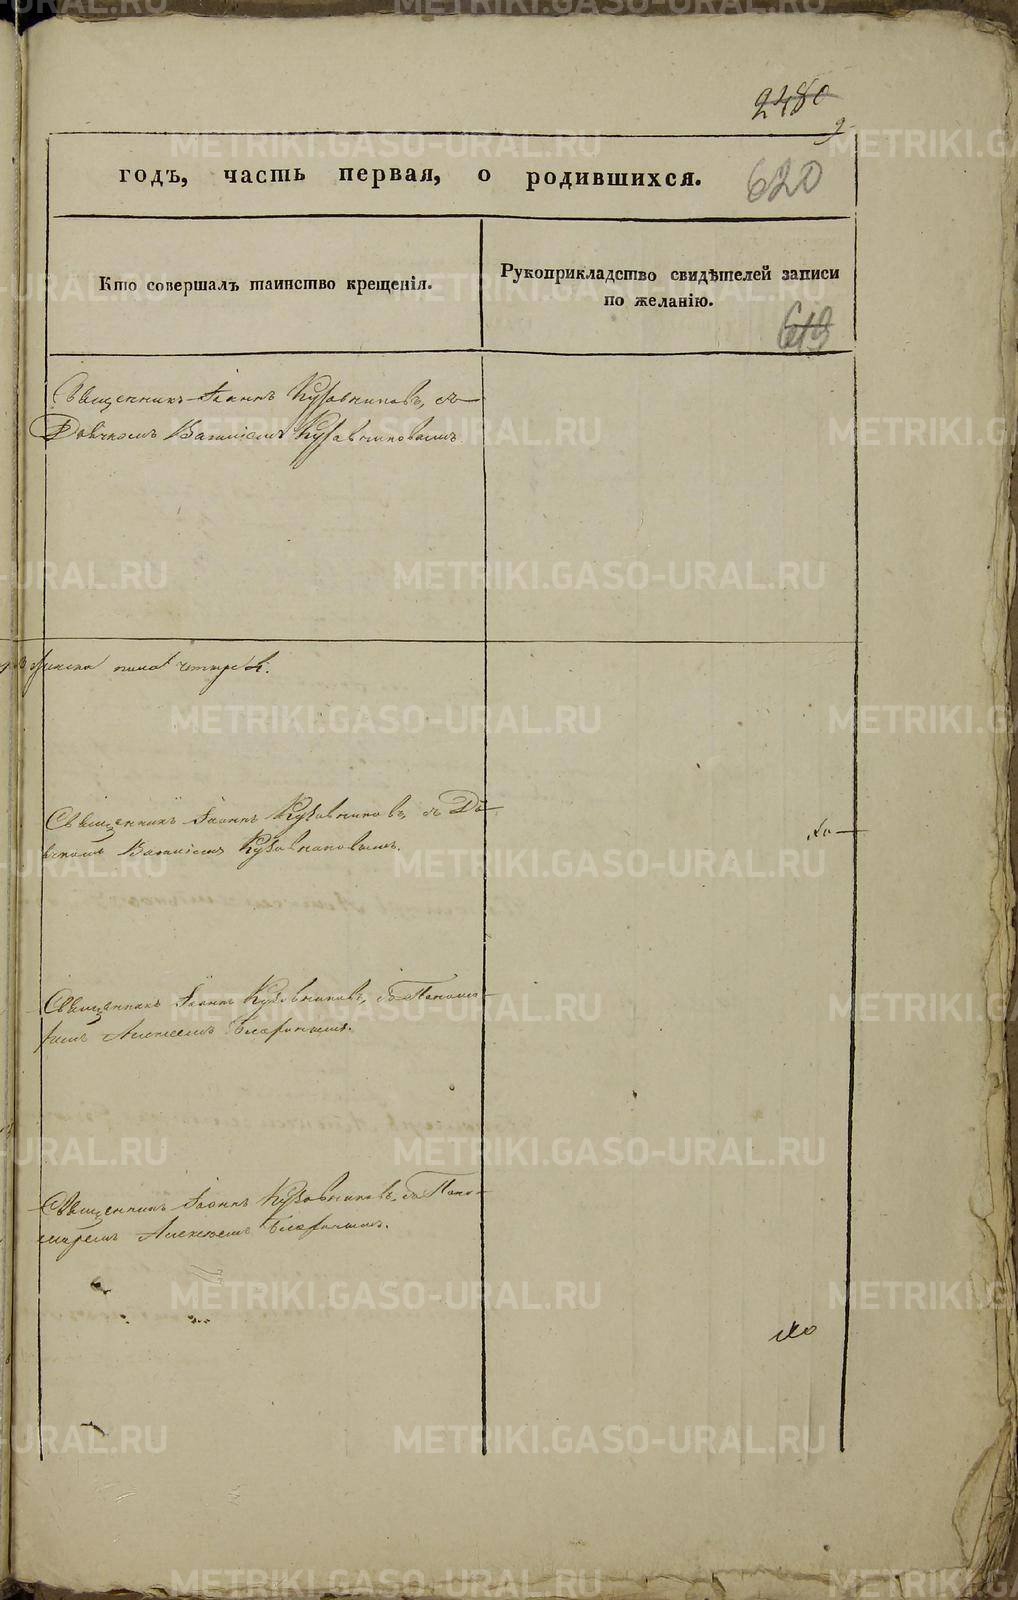 2480
2
годъ, часть первая, о родившихся.
620
Кто совершалъ таинство крещенія.
Рукоприкладство свидѣтелей записи
по желанію.
619
Священникъ Іоаннъ Кузовниковъ, съ
Дьячкомъ Василіемъ Кузовниковымъ.
четыре
Священникъ Іоаннъ Кузовниковъ, съ Дь-
ячкомъ Василіемъ Кузовниковымъ.
Священникъ Іоаннъ Кузовниковъ, съ Понома-
ремъ Алексеемъ
Священникъ Іоаннъ Кузовниковъ, съ Поно-
маремъ Алексеемъ
METRIKI.GASO-URAL.RU